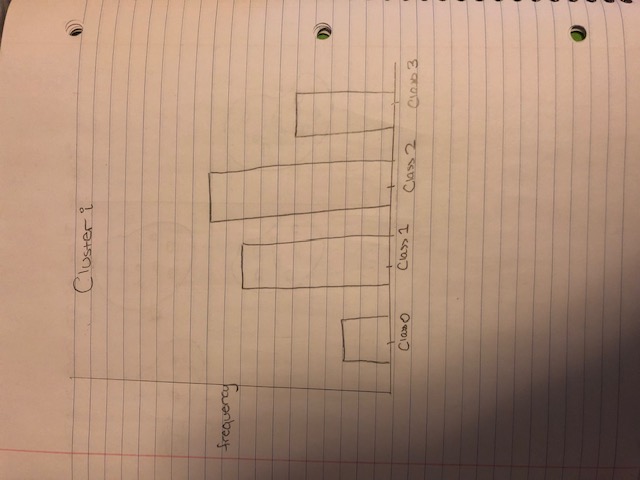 Cluster i
frequency
Class 0
Class 1
Class 2
Class 3